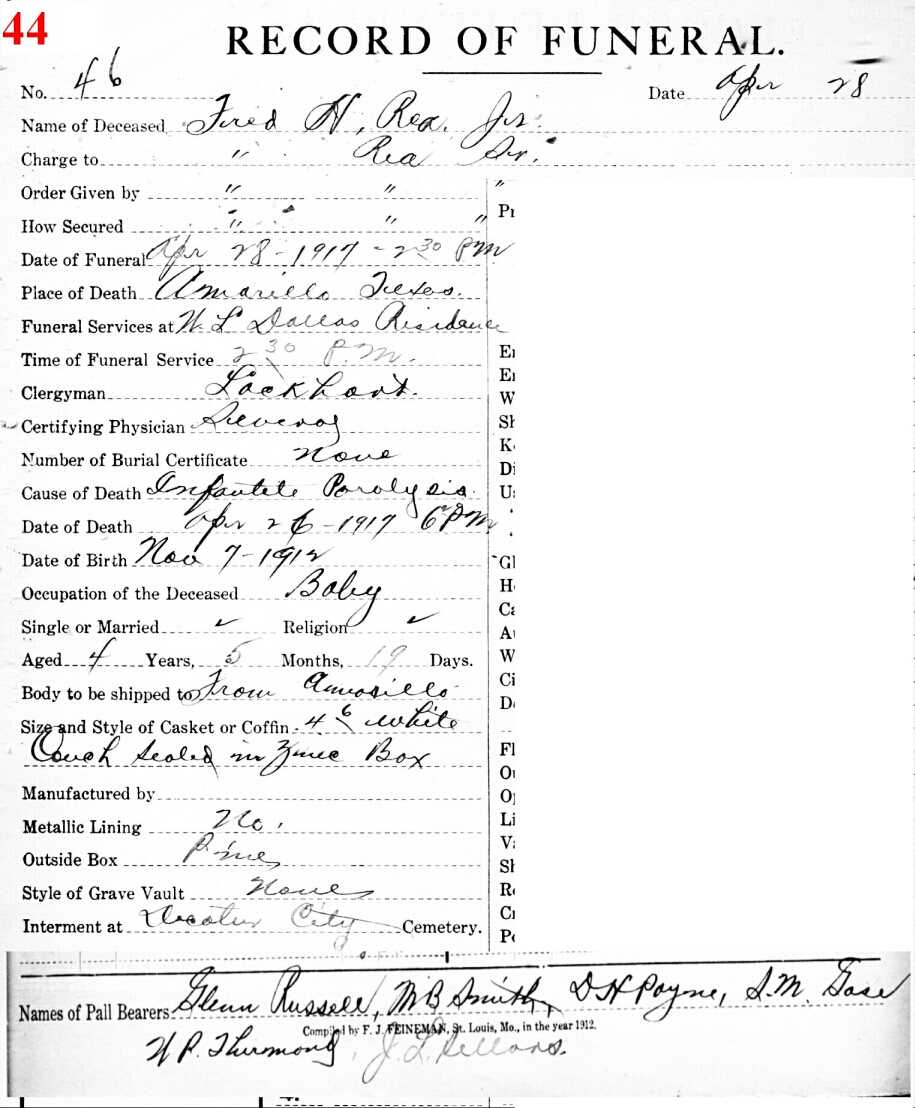 44
RECORD OF FUNERAL.
No. 46 Date Apr 28
Name of Deceased Fred H, Rea. Jr.
Charge to " Rea Sr.
Order Given by " " "
How Secured " " "
Pr
Date of Funeral Apr 28-1917 - 2 30 PM
Place of Death Amarillo Texas.
Funeral Services at W. L Dallas Residence
Time of Funeral Service 2 30 P.M.
Clergyman Lockhart.
Certifying Physician
Number of Burial Certificate None
Cause of Death Infantile Paralysis
Date of Death Apr 26-1917 6 PM
Date of Birth Nov 7-1912
Occupation of the Deceased Baby
Single or Married ✓ Religion ✓
Aged 4 Years, 5 Months, 19 Days.
Body to be shipped to From Amarillo
Size and Style of Casket or Coffin 4 6 White
Couch sealed in Zinc Box
Manufactured by
Metallic Lining No.
Outside Box Pine
Style of Grave Vault None
Interment at Decatur City Cemetery.
Names of Pall Bearers Glenn Russell, M B Smith, D H Payne, S. M. Gose
Compiled by F. J. FEINEMAN, St. Louis, Mo., in the year 1912.
W P. Thurmond, J. L. Sellars.